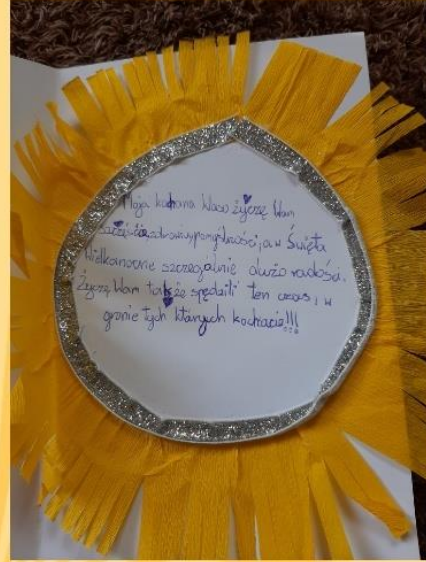 Moja kochana Waso życzę Wam
szczęścia, zdrowia, pomyślności, a w Święta
Wielkanocne szczególnie dużo radości.
Życzę Wam także spędzili ten czas, w
gronie tych których kochacie!!!